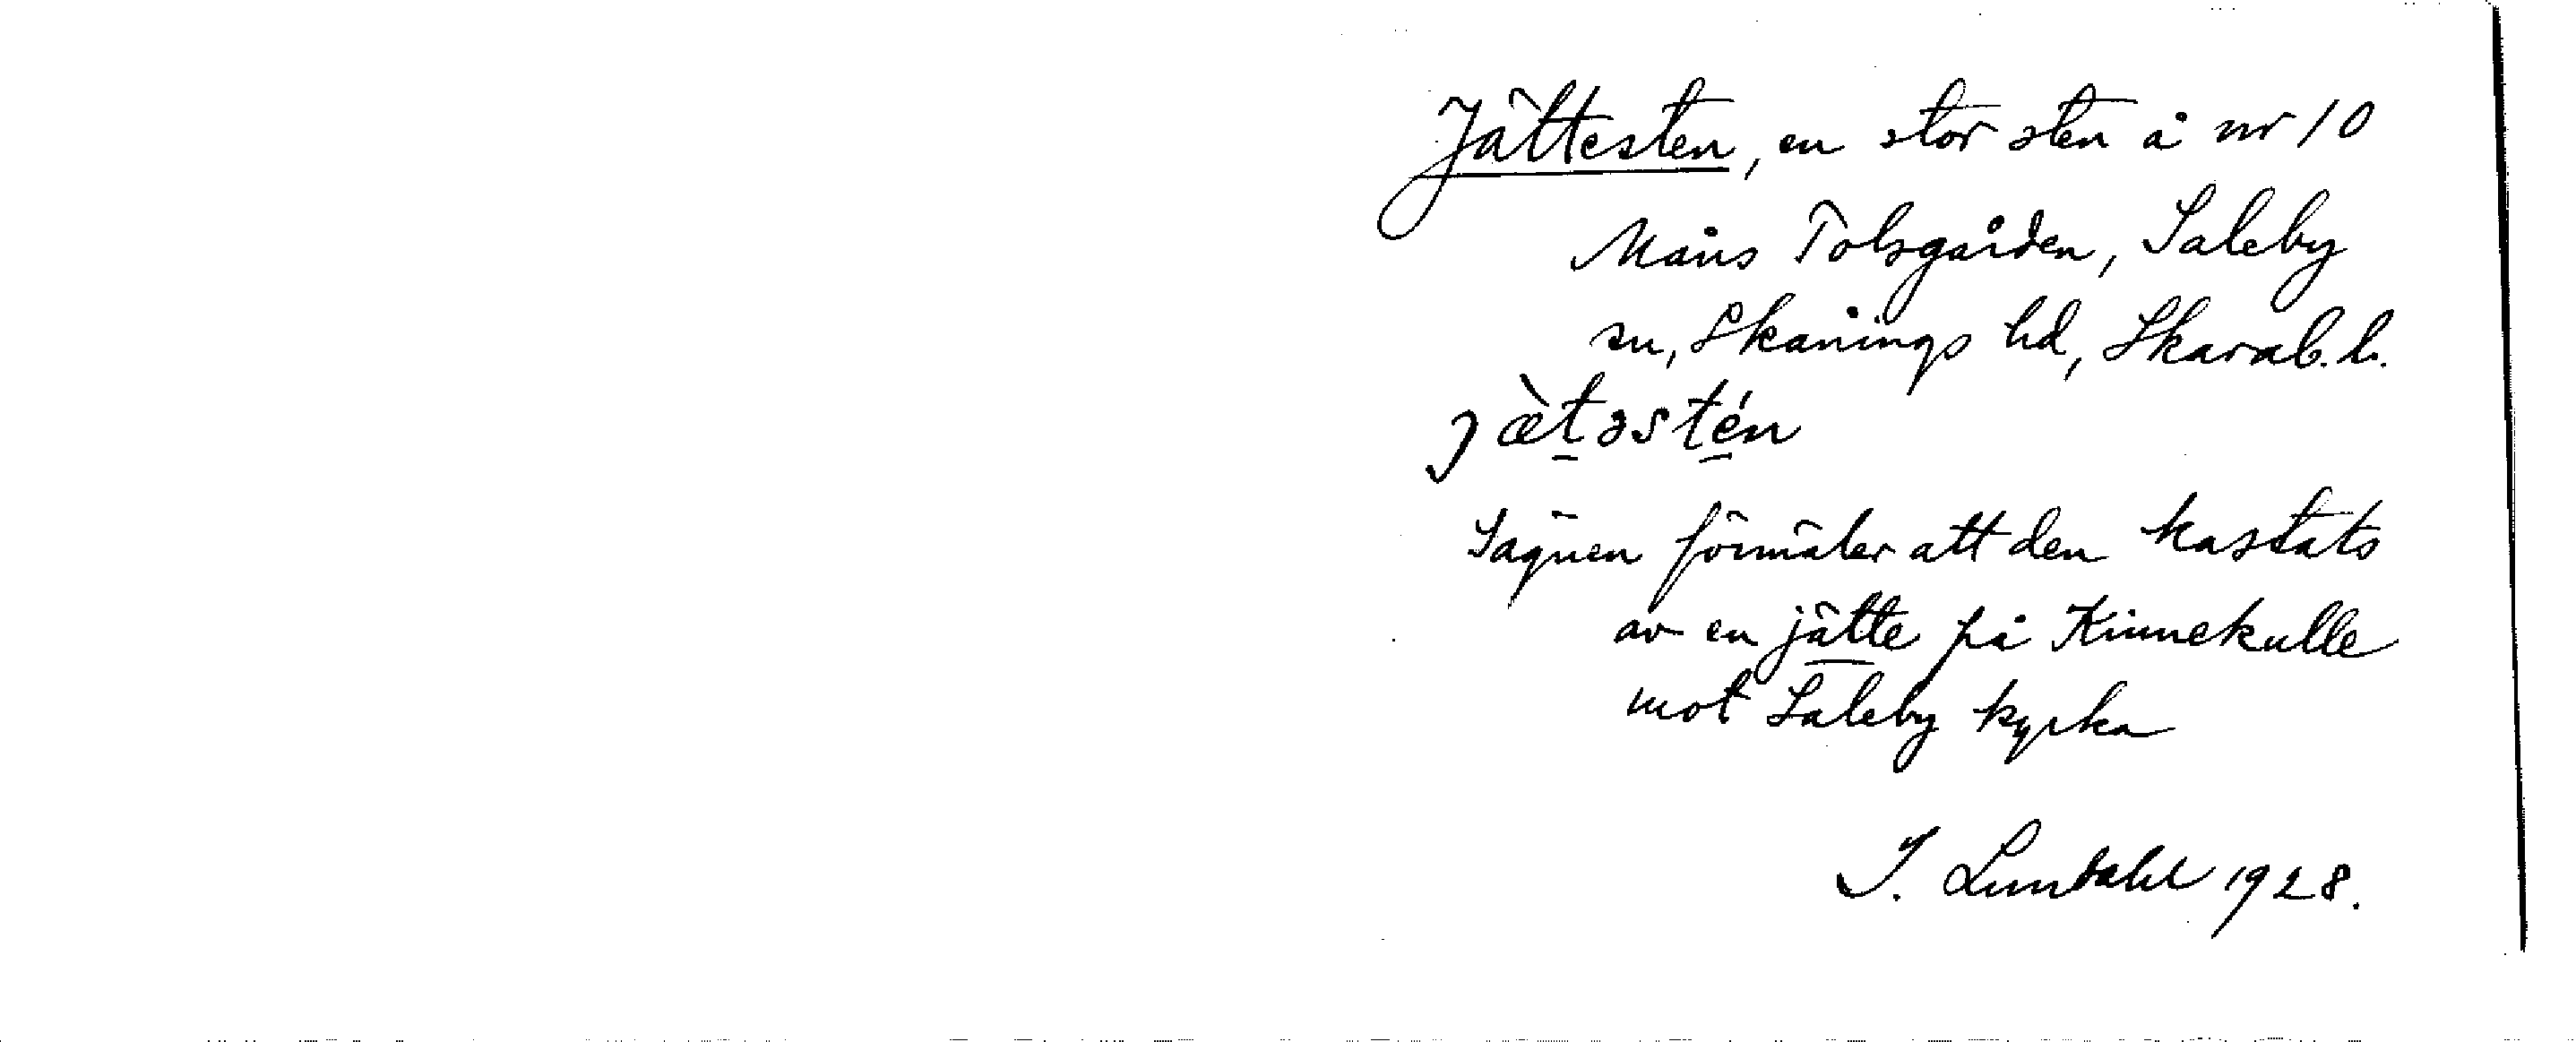 Jättesten, en stor sten å nr 10
Måns Tolsgården, Saleby
sn, Skånings hd, Skarab. l.
jæ̀təstén
Sägnen förmäler att den kastats
av en jätte på Kinnekulle
mot Saleby kyrka
I. Lundahl 1928.